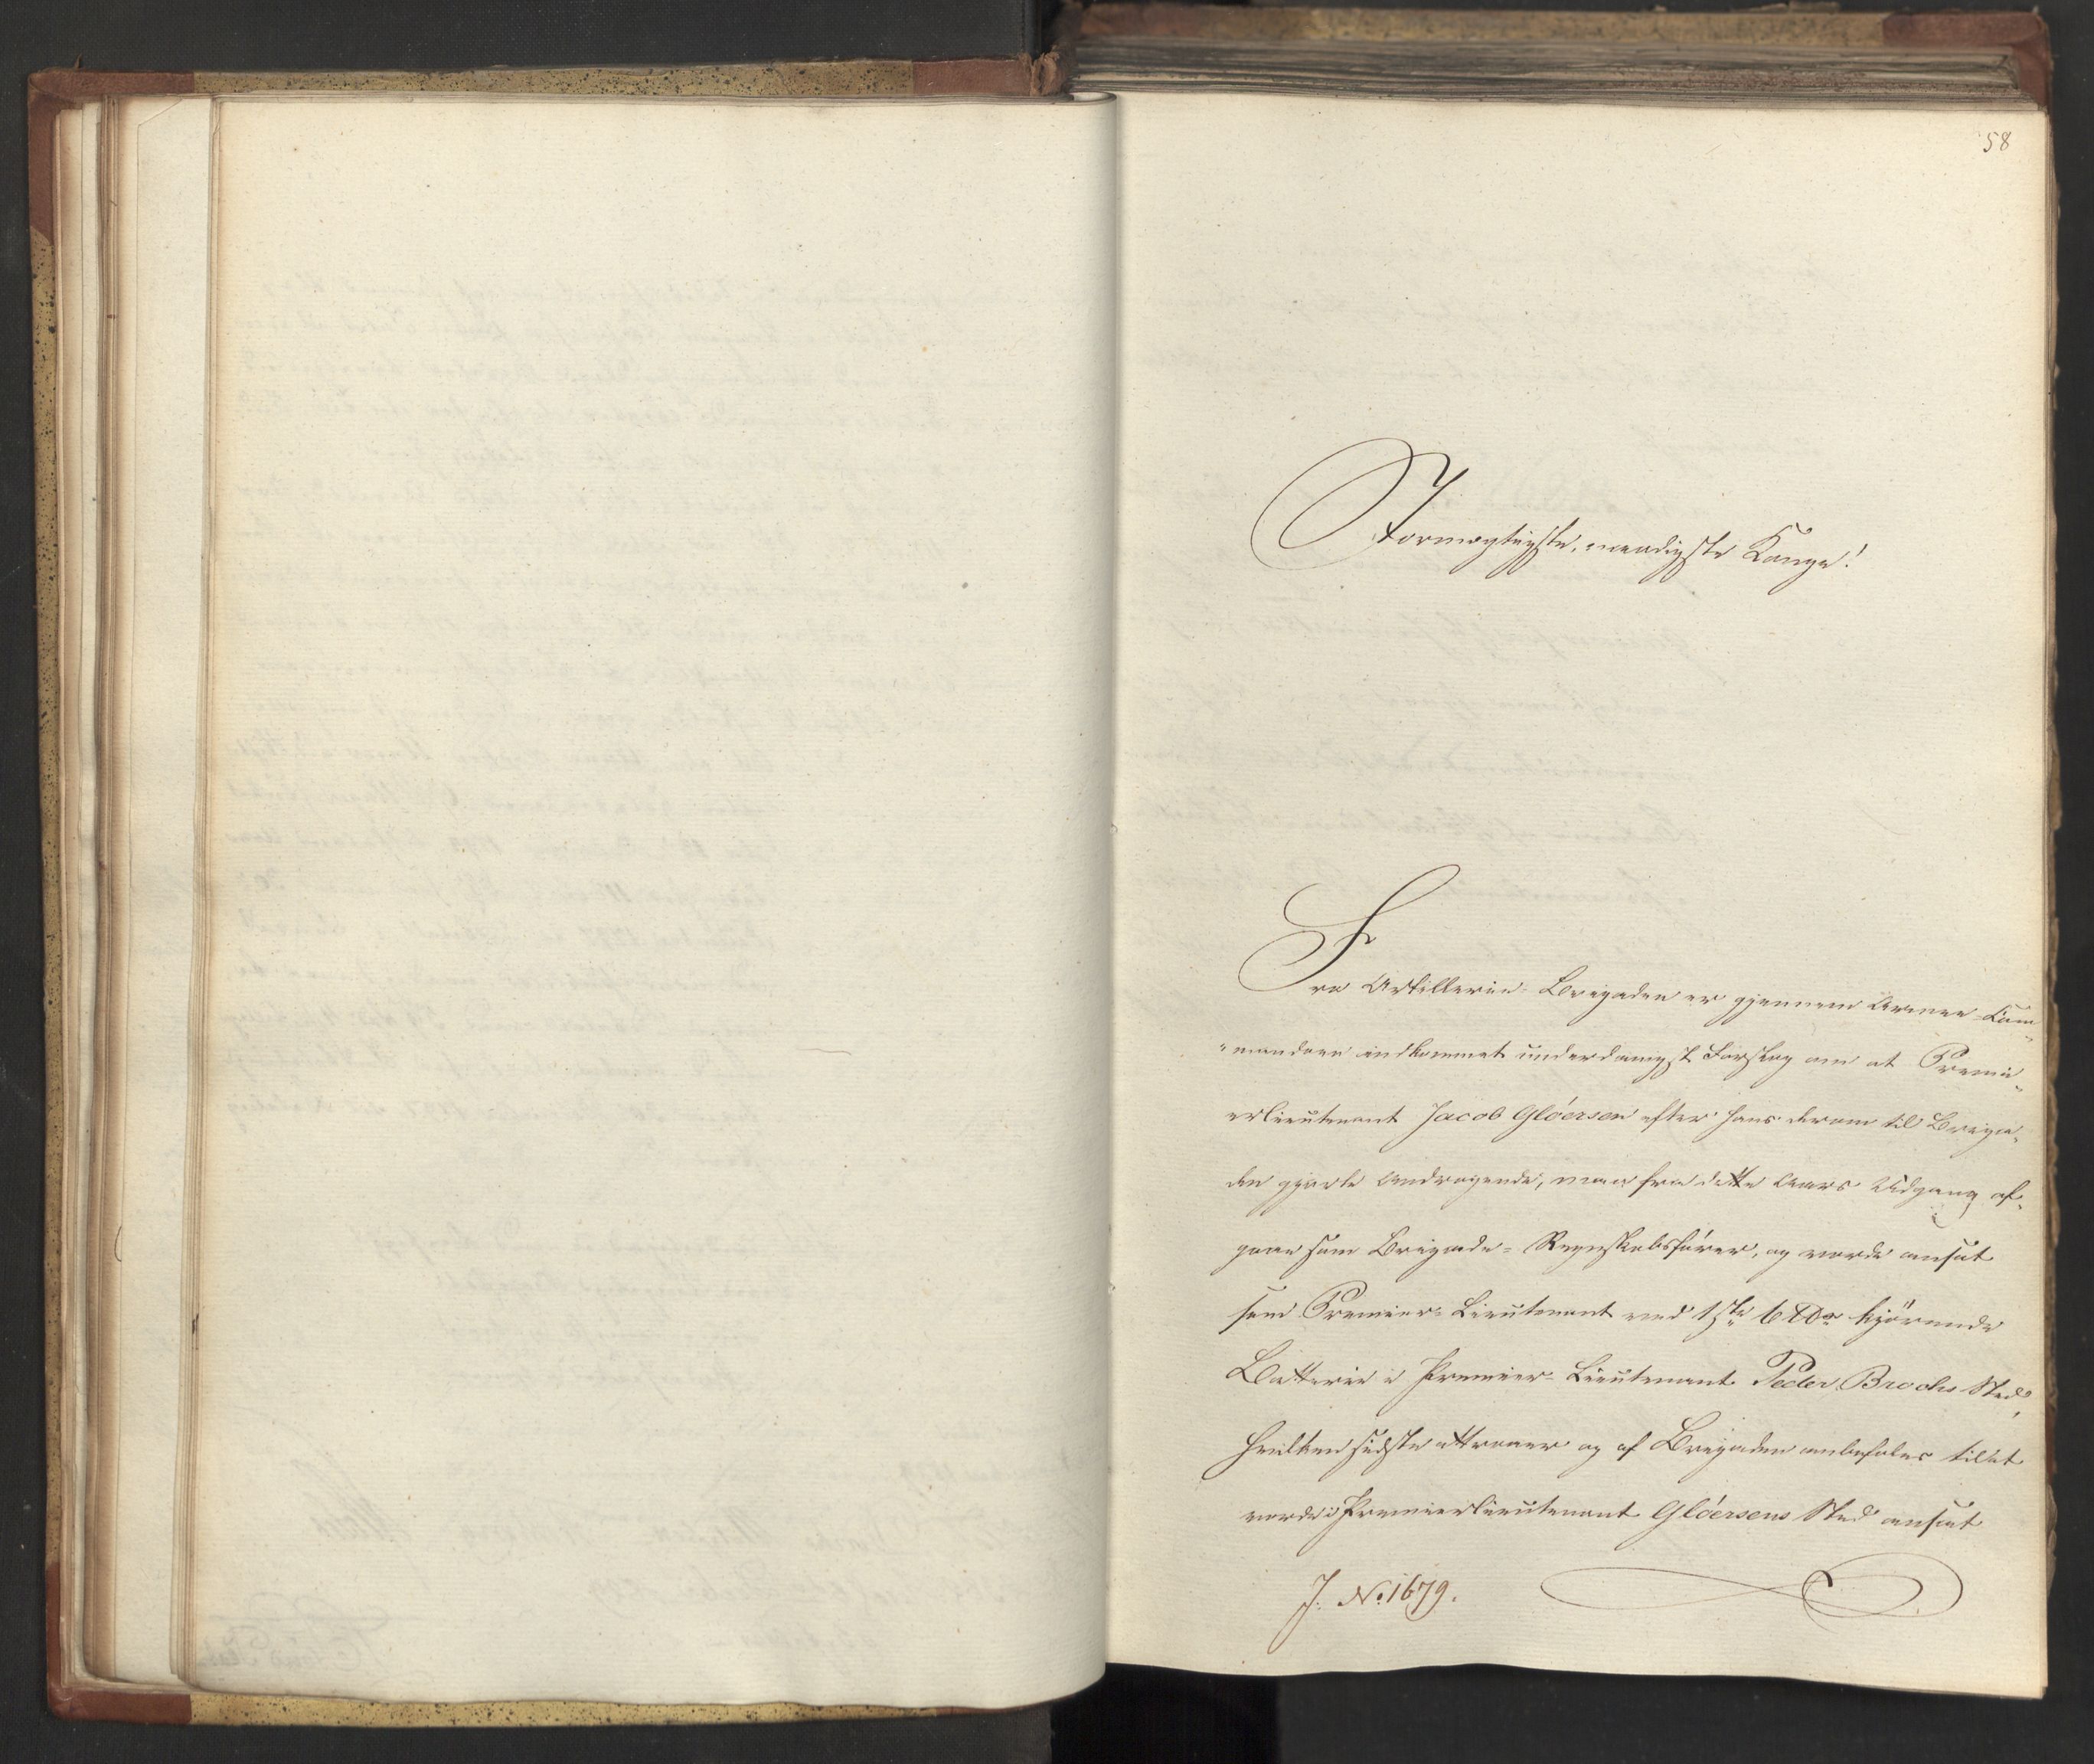 58
Stormægtigste, naadigste Konge!
Fra Artillerie-Brigaden er gjennem Armee-Com„
„mandoen indkommet underdanigst Forslag om at Premi„
erlieutenant Jacob Glöersen efter hans derom til Briga„
den gjorte Andragende, maa fra dette Aars Udgang af„
gaae som Brigade-Regnskabsfører, og vorde ansat
som Premier-Lieutenant ved 1ste 6 ℔ds kjørende
Batterie i Premier-Lieutenant Peder Brochs Sted,
hvilken sidste attraaer og af Brigaden anbefales til at
vorde i Premierlieutenant Glöersens Sted ansat
J. No. 1679.